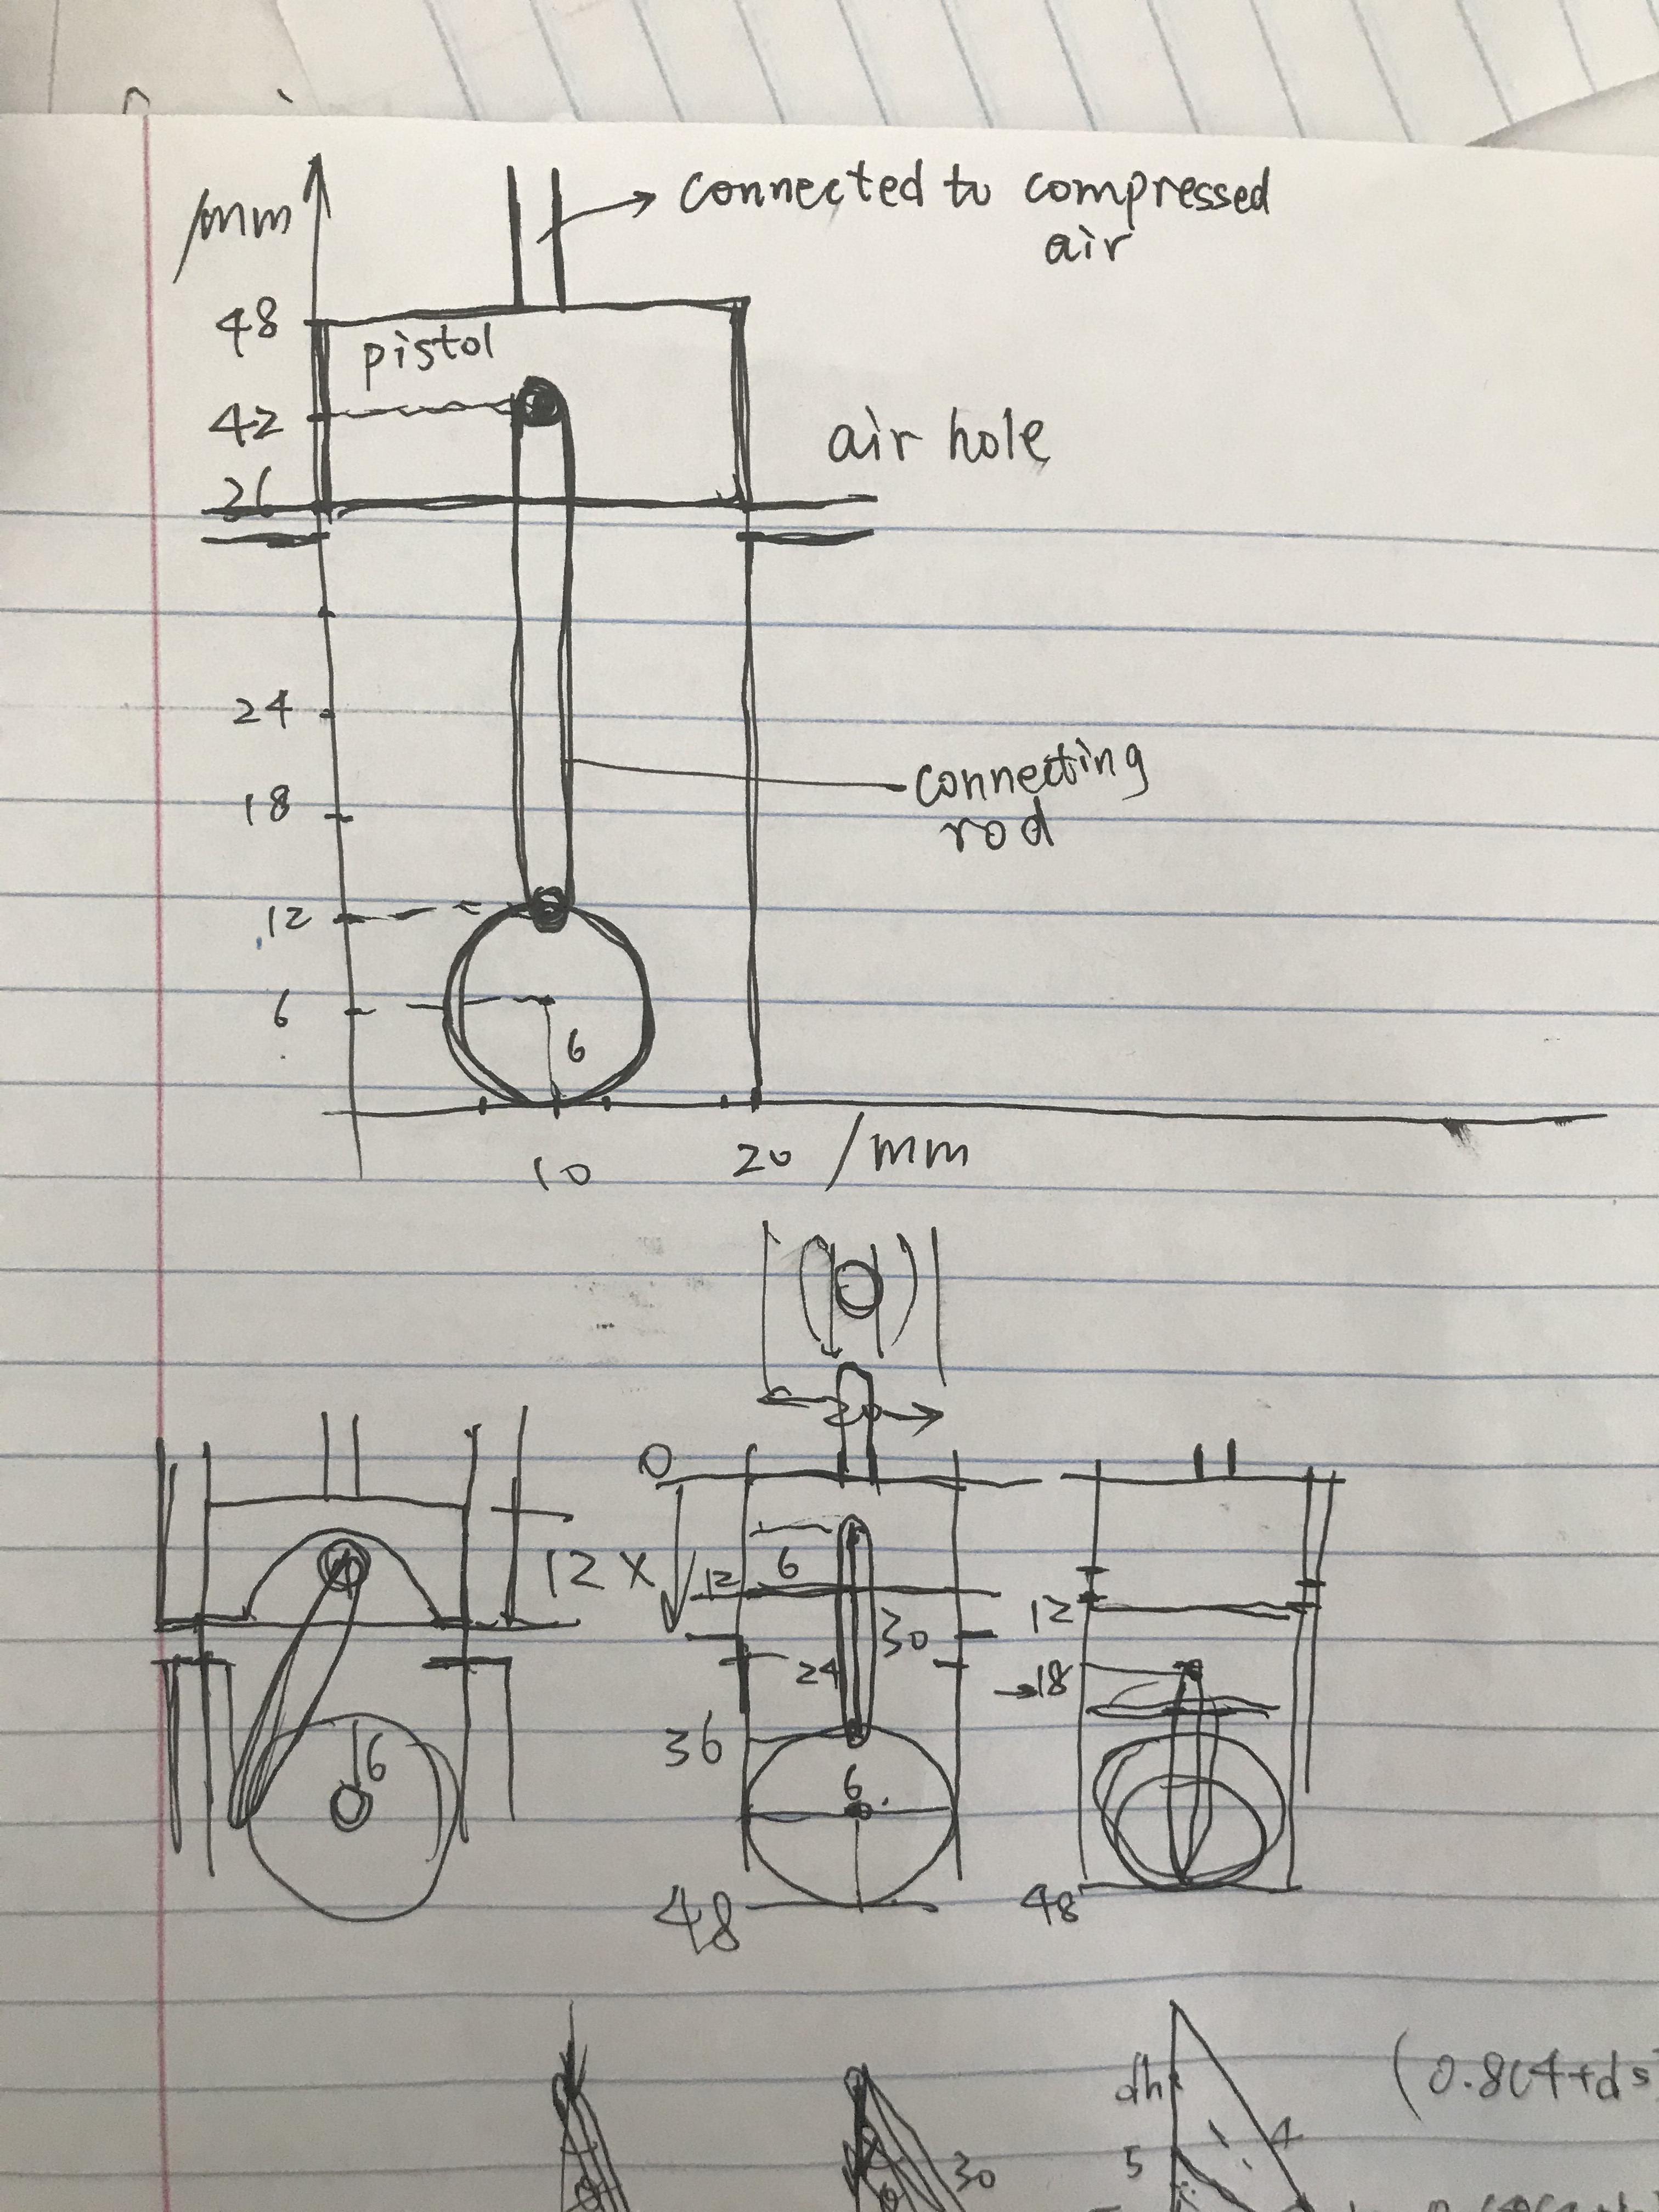 /mm
connected to compressed
air
48
pistol
42
air hole
36
24
connecting
rod
18
12
6
6
10
20 /mm
0
12 X
12
6
30
12
24
18
6
36
6
48
48
dh
(0.8(4+ds
4
5
30